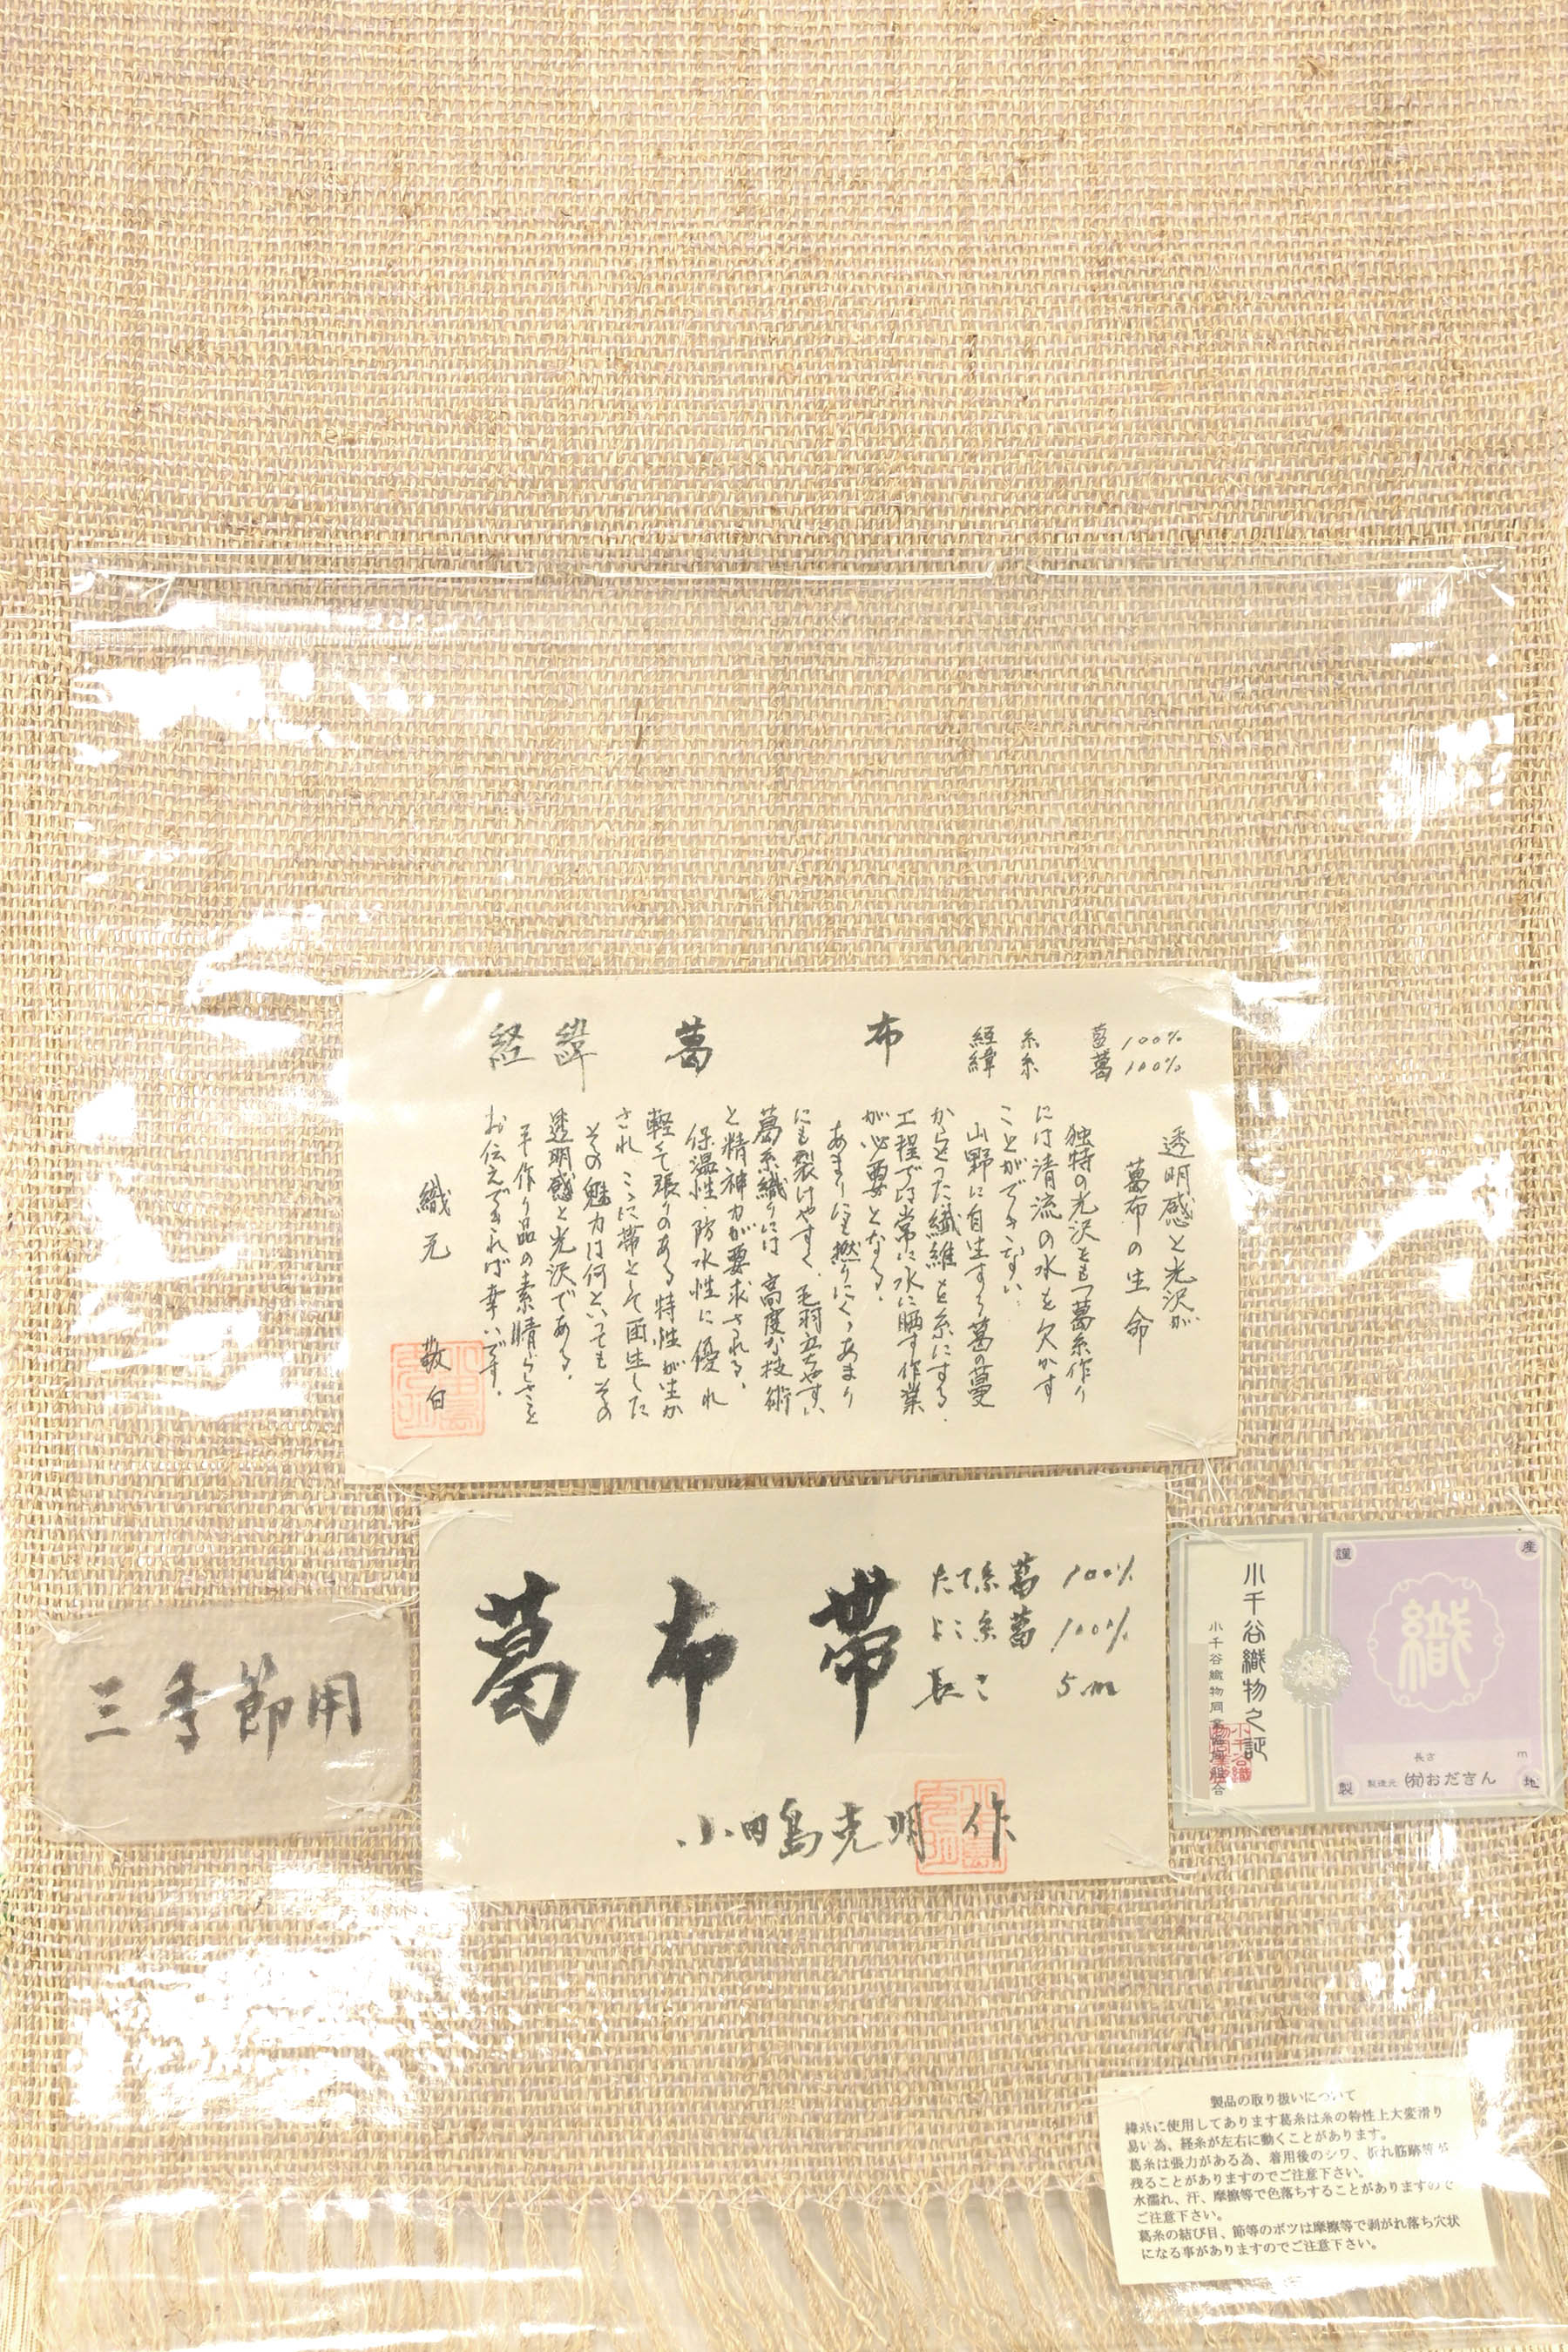 経緯葛布
経糸 葛 100%
緯糸 葛 100%
透明感と光沢が
葛布の生命
独特の光沢をもつ葛糸作り
には清流の水を欠かす
ことができない.
山野に自生する葛の蔓
からとった繊維を糸にする.
工程では常に水に晒す作業
が必要となる.
あまりにも撚りにくゝあまり
にも裂けやすく、毛羽立ちやすい
葛糸織りには高度な技術
と精神力が要求される.
保温性・防水性に優れ
軽くて張りのある特性が生か
され こゝに帯として再生した
その魅力は何といってもその
透明感と光沢である.
手作り品の素晴らしさを
お伝えできれば幸いです.
織元
敬白
葛布帯
たて糸葛 100%
よこ糸葛 100%
長さ 5m
小田島克明 作
三季節用
小千谷織物之証
小千谷織物同業協同組合
謹
産
織
長さ m
製造元 (有)おださん
製
地
製品の取り扱いについて
緯糸に使用してあります葛糸は糸の特性上大変滑り
易い為、経糸が左右に動くことがあります。
葛糸は張力がある為、着用後のシワ、折れ筋跡等が
残ることがありますのでご注意下さい。
水濡れ、汗、摩擦等で色落ちすることがありますので
ご注意下さい。
葛糸の結び目、節等のボツは摩擦等で剥がれ落ち穴状
になる事がありますのでご注意下さい。